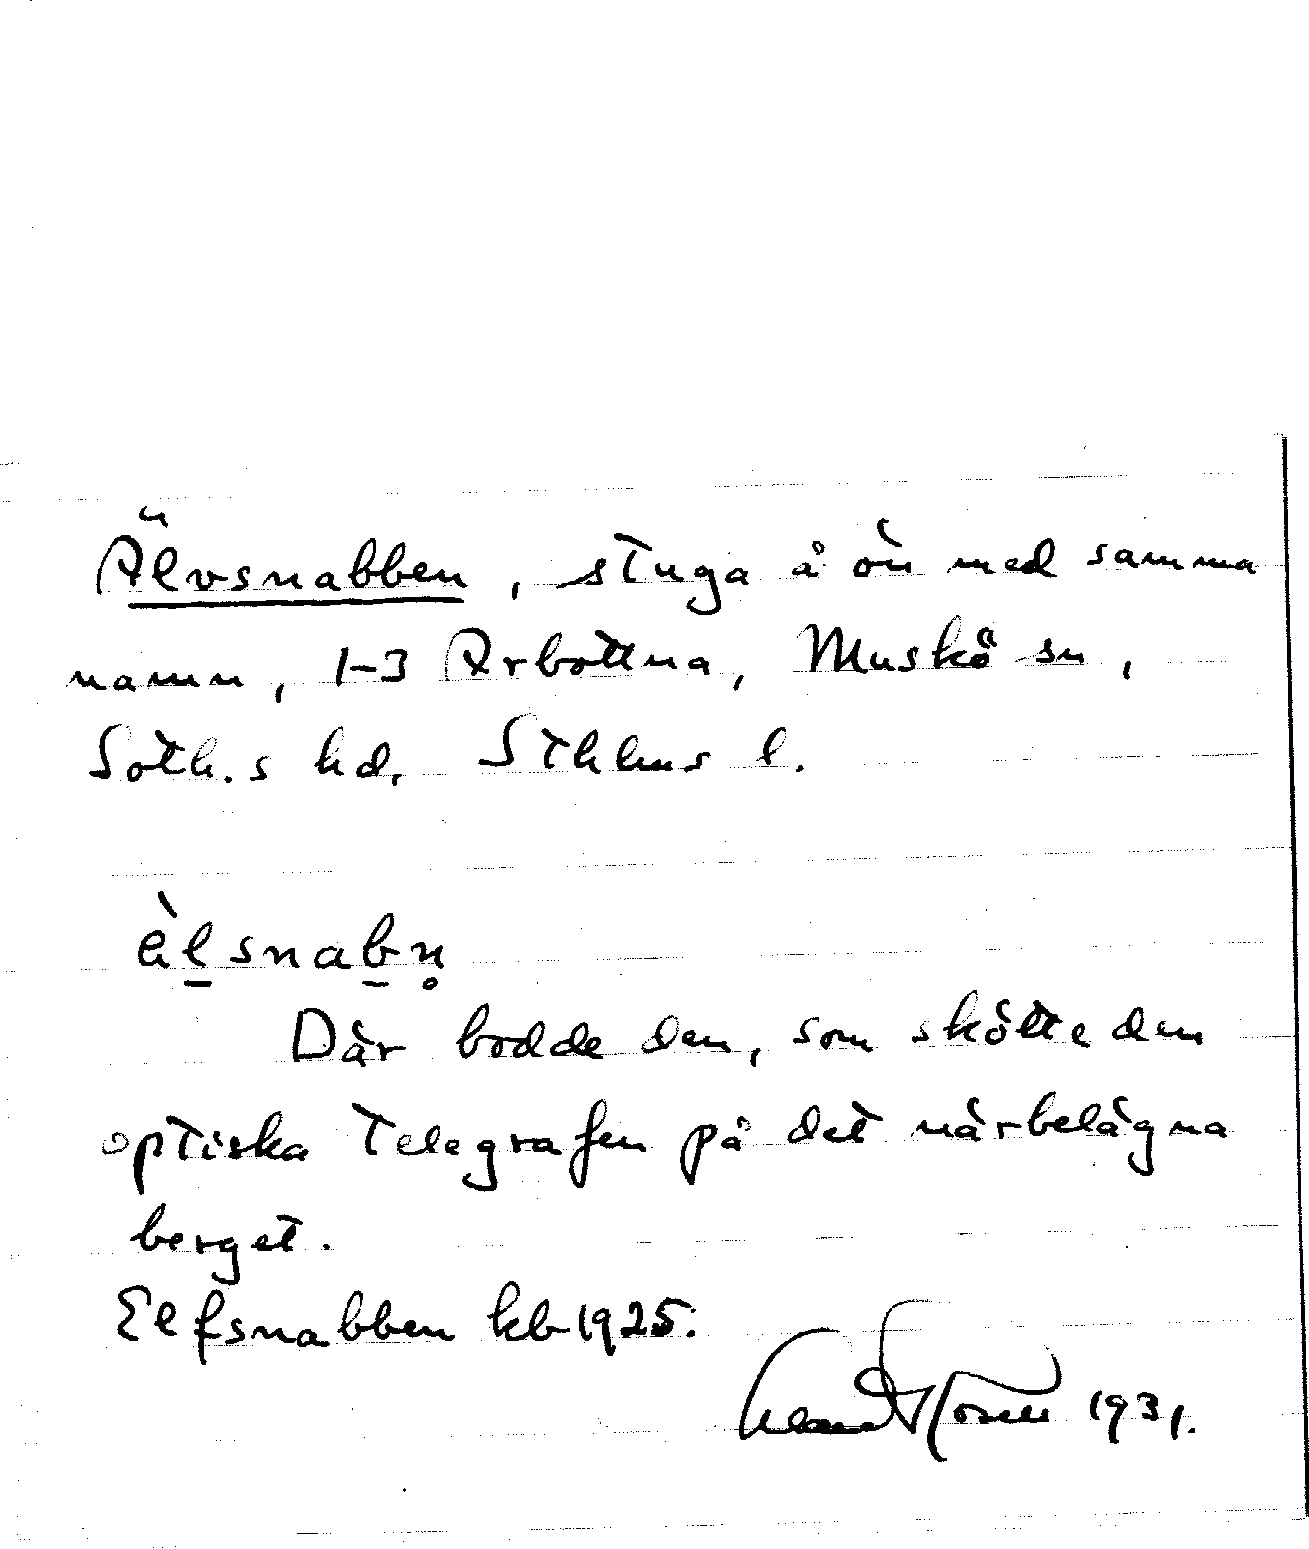 Älvsnabben, stuga å ön med samma
namn, 1-3 Arbottna, Muskö sn,
Soth.s hd, Sthlms l.
èl̠snab̠n̥
Där bodde den, som skötte den
optiska telegrafen på det närbelägna
berget.
Elfsnabben kb 1925.
1931.